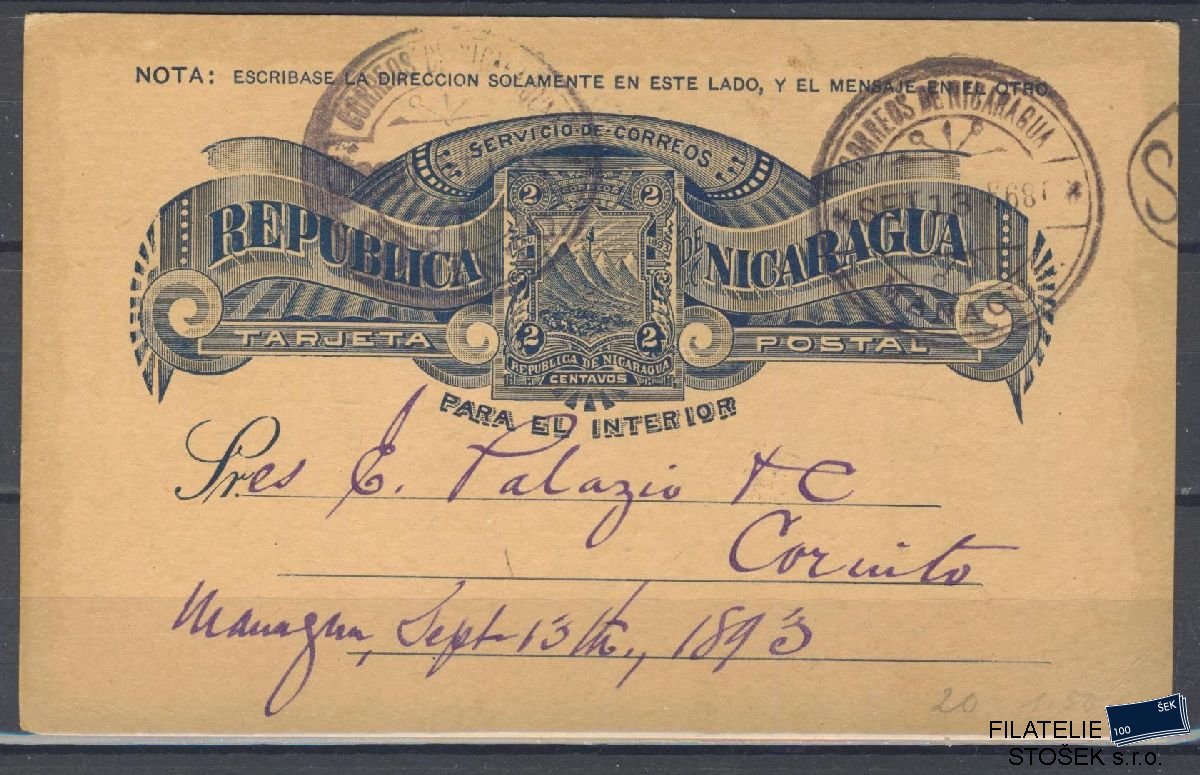 NOTA: ESCRIBASE LA DIRECCION SOLAMENTE EN ESTE LADO, Y EL MENSAJE EN EL OTRO
CORREOS DE NICARAGUA
CORREOS DE NICARAGUA
SERVICIO DE CORREOS
2 CORREOS 2
SET 13
REPUBLICA DE NICARAGUA
2 2
REPUBLICA DE NICARAGUA
CENTAVOS
TARJETA POSTAL
PARA EL INTERIOR
Sres E. Palazio & C
Corinto
Managua, Sept 13th., 1893
20 1.50
FILATELIE
STOŠEK s.r.o.
100 ŠEK